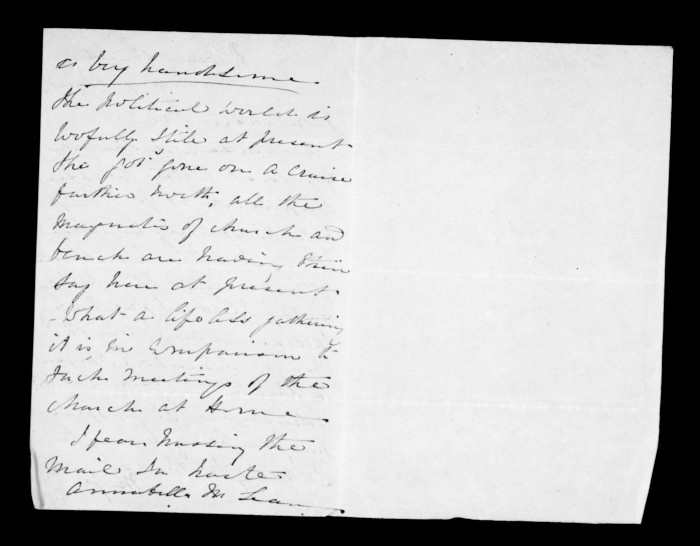 as very handsome.
The political world is
wofully still at present.
The govr gone on a cruise
further north, all the
magnates of church and
bench are having their
say here at present.
What a lifeless gathering
it is, in comparison to
such meetings of the
church at Home
I fear missing the
Mail In haste
Annabella McLean